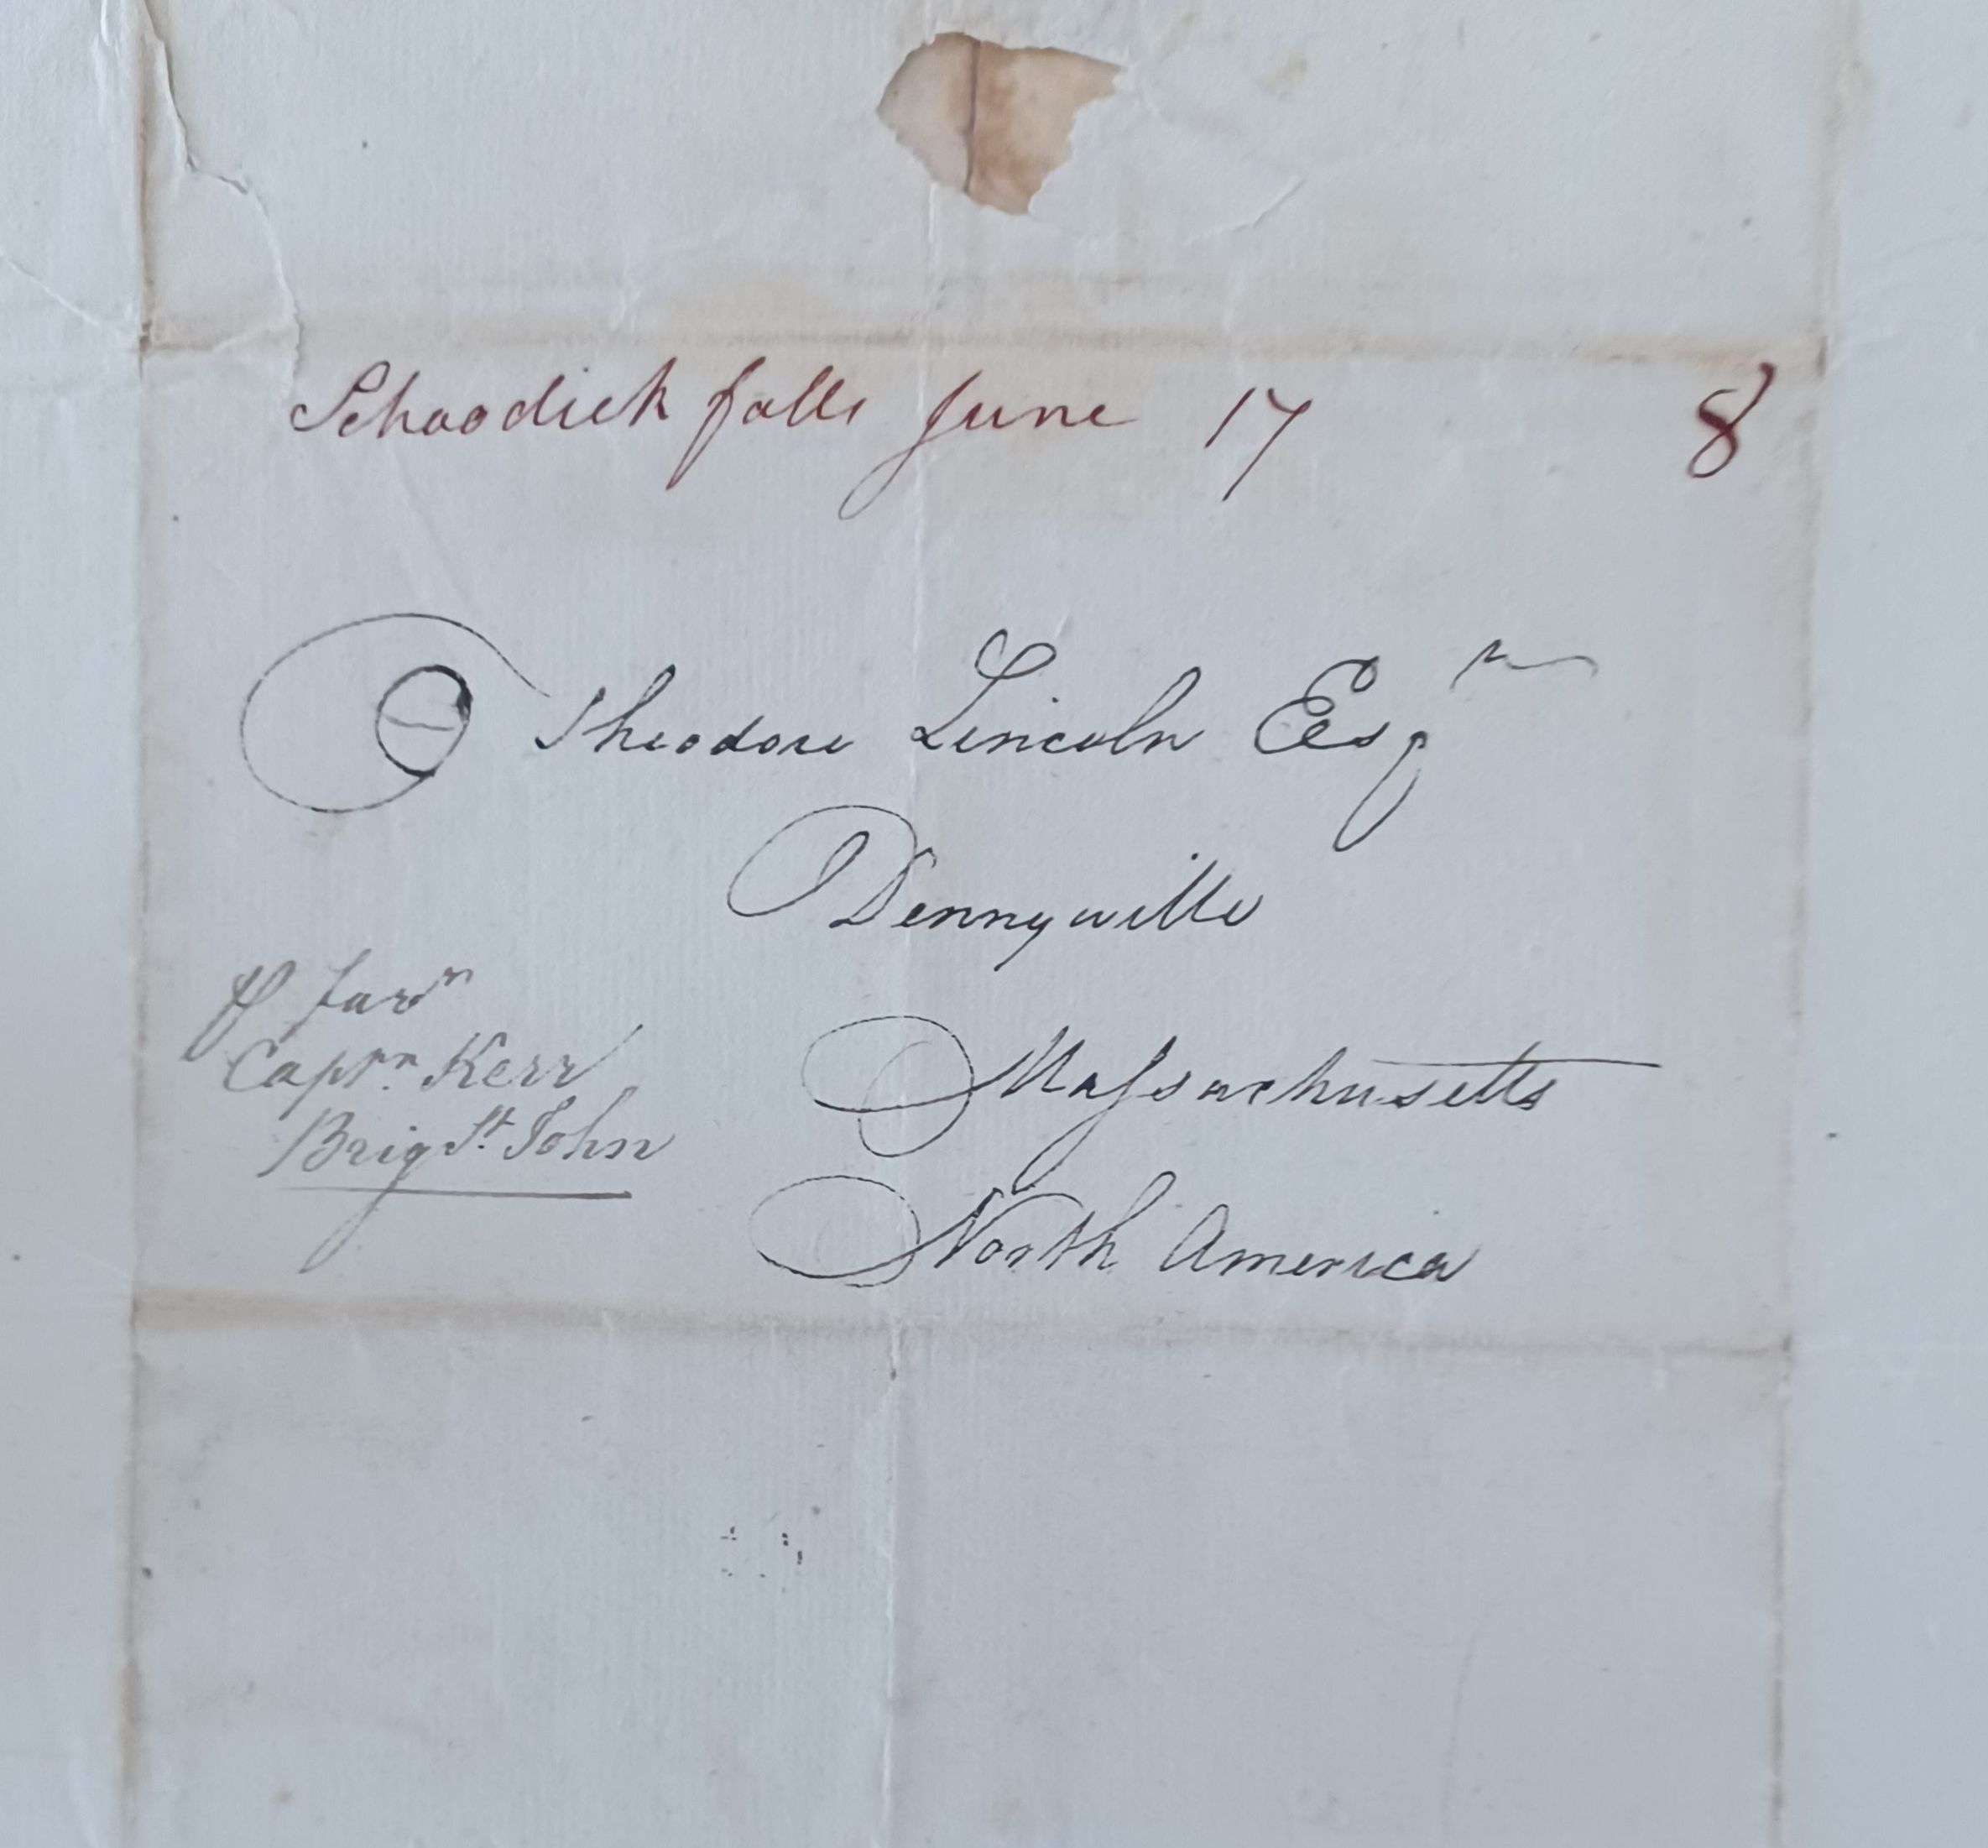 Schoodick falls June 17 8
Theodore Lincoln Esqr
Dennyville
Massachusetts
North America
⅌ favr
Captn. Kerr
Brig St. John